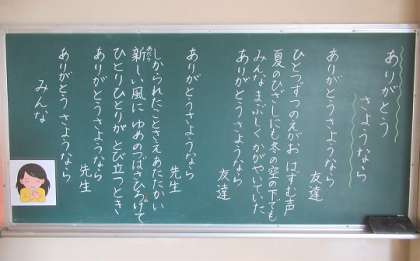 ありがとう
さようなら
ありがとう さようなら
友達
ひとつずつのえがお はずむ声
夏のひざしにも冬の空の下でも
みんなまぶしくかがやいていた
ありがとう さようなら
友達
ありがとう さようなら
先生
しかられたことさえあたたかい
新しい風にゆめのつばさひろげて
ひとりひとりが とび立つとき
ありがとう さようなら
先生
ありがとう さようなら
みんな